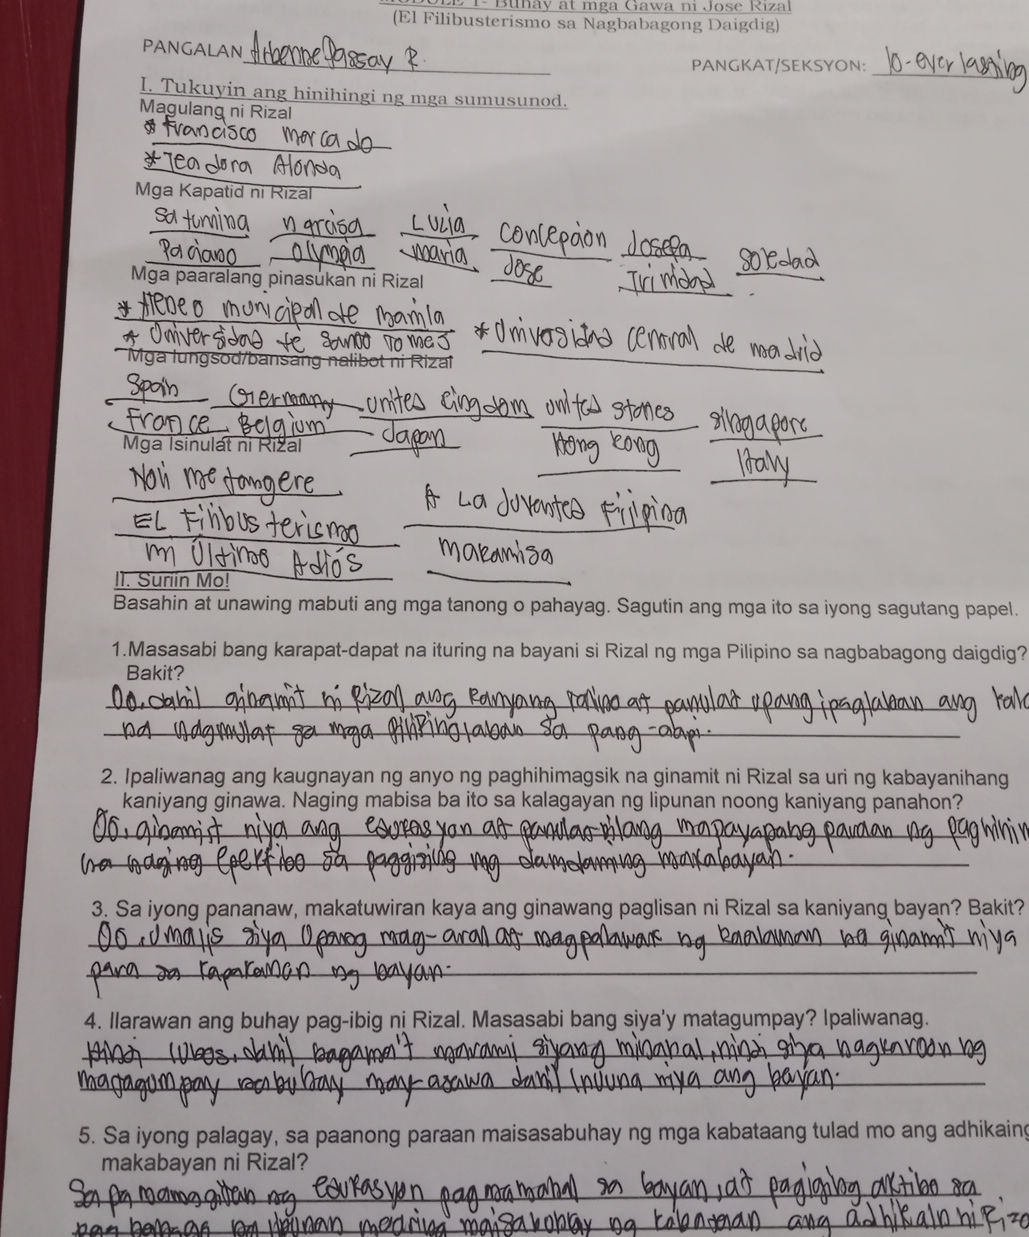 Buhay at mga Gawa ni Jose Rizal
(El Filibusterismo sa Nagbabagong Daigdig)
PANGALAN Arbenne Passay R.
PANGKAT/SEKSYON: 10-everlasting
I. Tukuyin ang hinihingi ng mga sumusunod.
Magulang ni Rizal
* Francisco mercado
* Teadora Alonda
Mga Kapatid ni Rizal
Saturnina narcisa Lucia concepcion Josefa soledad
Paciano olympia maria Jose Trinidad
Mga paaralang pinasukan ni Rizal
* Ateneo municipal de manila
* Universidad te Santo Tomes * Univesidad central de madrid
Mga lungsod/bansang nalibot ni Rizal
Spain Germany unites cingdom united stanes singapore
France Belgium Japan Hong Kong Italy
Mga Isinulat ni Rizal
Noli me tangere
A La Juventud Filipina
EL Filibusterismo
mi Ultimo Adiós makamisa
II. Suriin Mo!
Basahin at unawing mabuti ang mga tanong o pahayag. Sagutin ang mga ito sa iyong sagutang papel.
1.Masasabi bang karapat-dapat na ituring na bayani si Rizal ng mga Pilipino sa nagbabagong daigdig?
Bakit?
Oo, dahil ginamit ni Rizal ang kanyang talino at panulat upang ipaglaban ang
na nagmulat sa mga pilipino laban sa pang-aapi.
2. Ipaliwanag ang kaugnayan ng anyo ng paghihimagsik na ginamit ni Rizal sa uri ng kabayanihang
kaniyang ginawa. Naging mabisa ba ito sa kalagayan ng lipunan noong kaniyang panahon?
Oo, ginamit niya ang edukasyon at panulat bilang mapayapang paraan ng
na naging epektibo sa paggising ng damdaming makabayan.
3. Sa iyong pananaw, makatuwiran kaya ang ginawang paglisan ni Rizal sa kaniyang bayan? Bakit?
Oo, Umalis siya Upang mag-aral at magpalawak ng kaalaman na ginamit niya
para sa kapakanan ng bayan.
4. Ilarawan ang buhay pag-ibig ni Rizal. Masasabi bang siya'y matagumpay? Ipaliwanag.
Hindi lubos, dahil bagama't marami siyang minahal, hindi siya nagkaroon ng
magagumpay na buhay may-asawa dahil inuuna niya ang bayan.
5. Sa iyong palagay, sa paanong paraan maisasabuhay ng mga kabataang tulad mo ang adhikaing
makabayan ni Rizal?
Sa pamamagitan ng edukasyon pagmamahal sa bayan, at pagiging aktibo sa
maaring maisabuhay ng kabataan ang adhikain ni